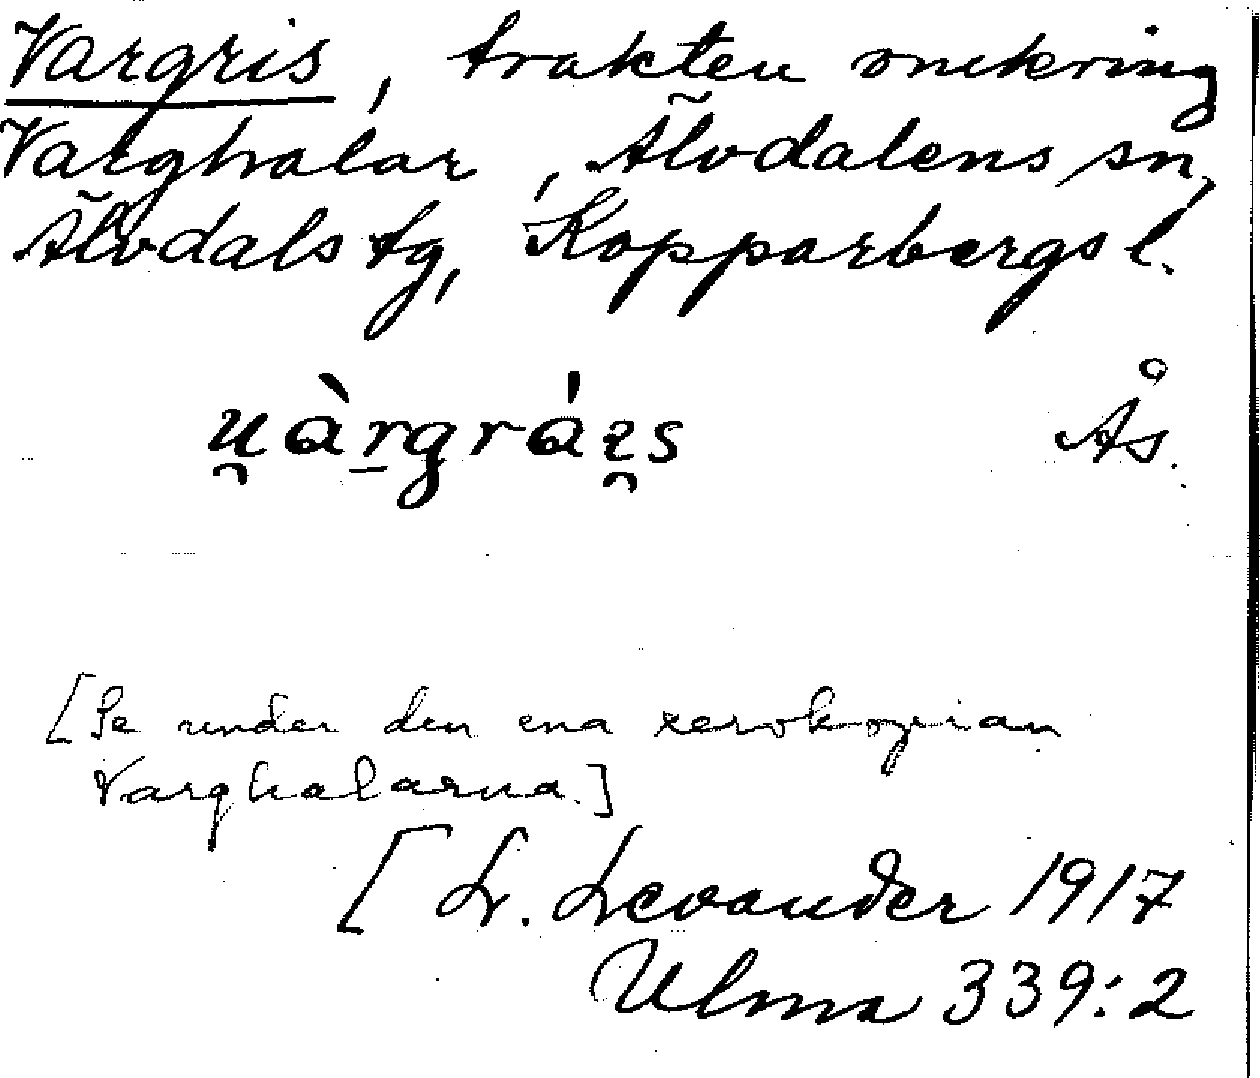 Vargris, trakten omkring
Varghalar, Älvdalens sn,
Älvdals tg, Kopparbergs l.
u̯àr̠grái̯s Ås.
[Se under den ena xerokopian
Varghalarna.]
[L. Levander 1917
Ulma 339:2